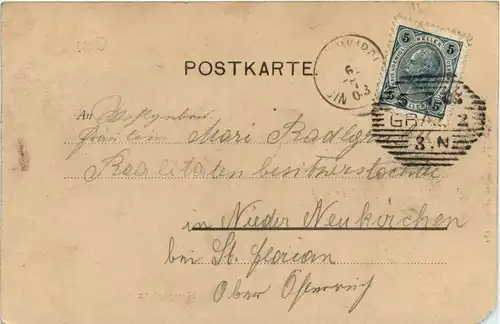 POSTKARTE
5 HELLER 5
GRAZ 2
3 N
An Wohlgeboren
Fräulein Mari
Realitätenbesitzerstochter
in Nieder Neukirchen
bei St. Florian
Ober Österreich